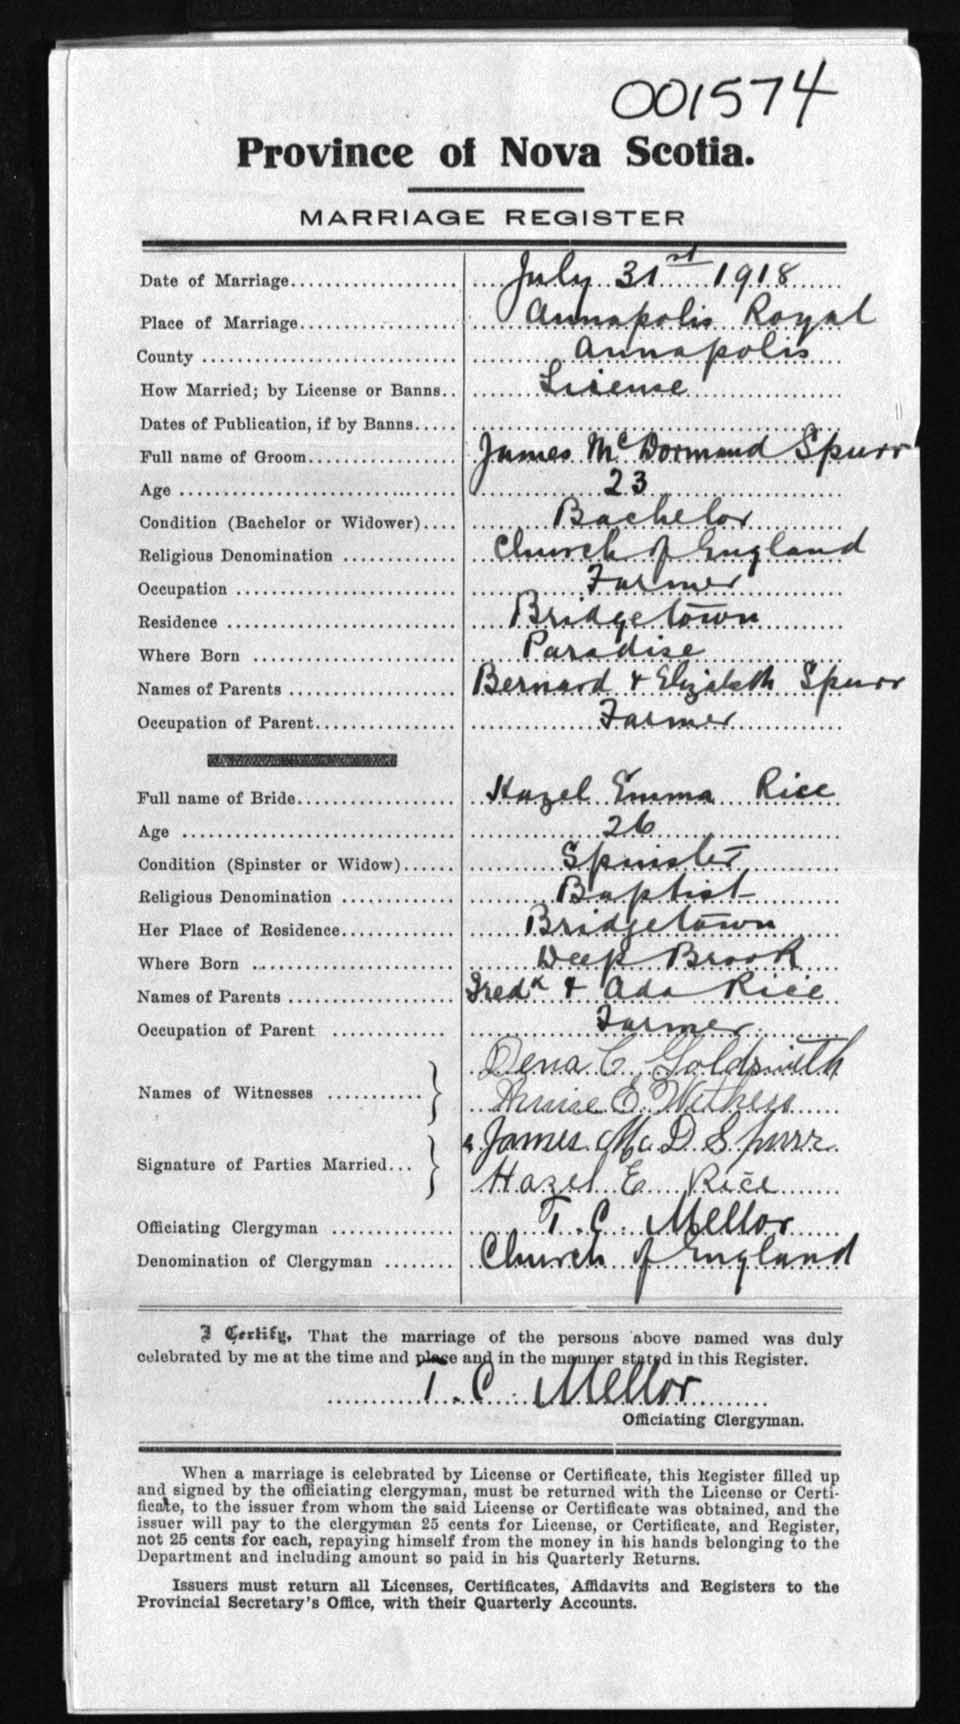 001574
Province of Nova Scotia.
MARRIAGE REGISTER
Date of Marriage.................... July 31st 1918
Place of Marriage................... Annapolis Royal
County ............................. Annapolis
How Married; by License or Banns.. License
Dates of Publication, if by Banns.....
Full name of Groom................. James McDormand Spurr
Age ................................ 23
Condition (Bachelor or Widower).... Bachelor
Religious Denomination ............. Church of England
Occupation ......................... Farmer
Residence .......................... Bridgetown
Where Born ......................... Paradise
Names of Parents ................... Bernard & Elizabeth Spurr
Occupation of Parent................ Farmer
Full name of Bride.................. Hazel Emma Rice
Age ................................ 26
Condition (Spinster or Widow)...... Spinster
Religious Denomination ............. Baptist
Her Place of Residence............. Bridgetown
Where Born ......................... Deep Brook
Names of Parents ................... Fredk & Ada Rice
Occupation of Parent ............... Farmer
Names of Witnesses ........... Dena C Goldsmith
E
Signature of Parties Married... James Mc D Spurr
Hazel E Rice
Officiating Clergyman .............. T. C. Mellor
Denomination of Clergyman ........ Church of England
I Certify, That the marriage of the persons above named was duly
celebrated by me at the time and place and in the manner stated in this Register.
T. C. Mellor
Officiating Clergyman.
When a marriage is celebrated by License or Certificate, this Register filled up
and signed by the officiating clergyman, must be returned with the License or Certi-
ficate, to the issuer from whom the said License or Certificate was obtained, and the
issuer will pay to the clergyman 25 cents for License, or Certificate, and Register,
not 25 cents for each, repaying himself from the money in his hands belonging to the
Department and including amount so paid in his Quarterly Returns.
Issuers must return all Licenses, Certificates, Affidavits and Registers to the
Provincial Secretary's Office, with their Quarterly Accounts.